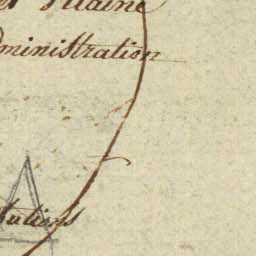 et Vilaine
dministration
tutions